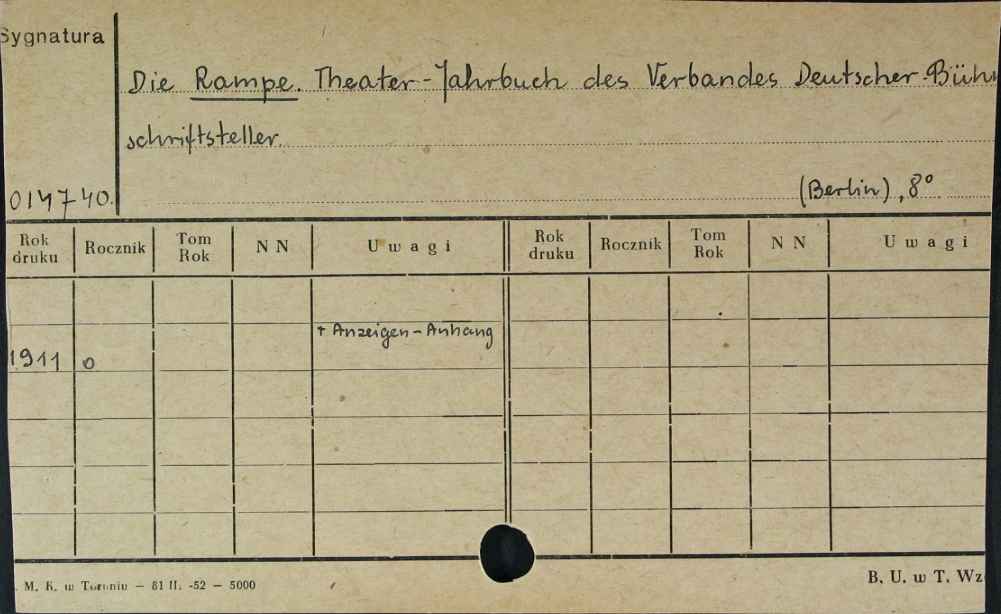 Sygnatura
Die Rampe. Theater-Jahrbuch des Verbandes Deutscher Büh
schriftsteller.
014740.
(Berlin), 8°
Rok druku Rocznik Tom Rok N N Uwagi Rok druku Rocznik Tom Rok N N Uwagi
+ Anzeigen-Anhang
1911 0
M. K. w Toruniu — 81 II. -52 — 5000
B. U. w T. Wz